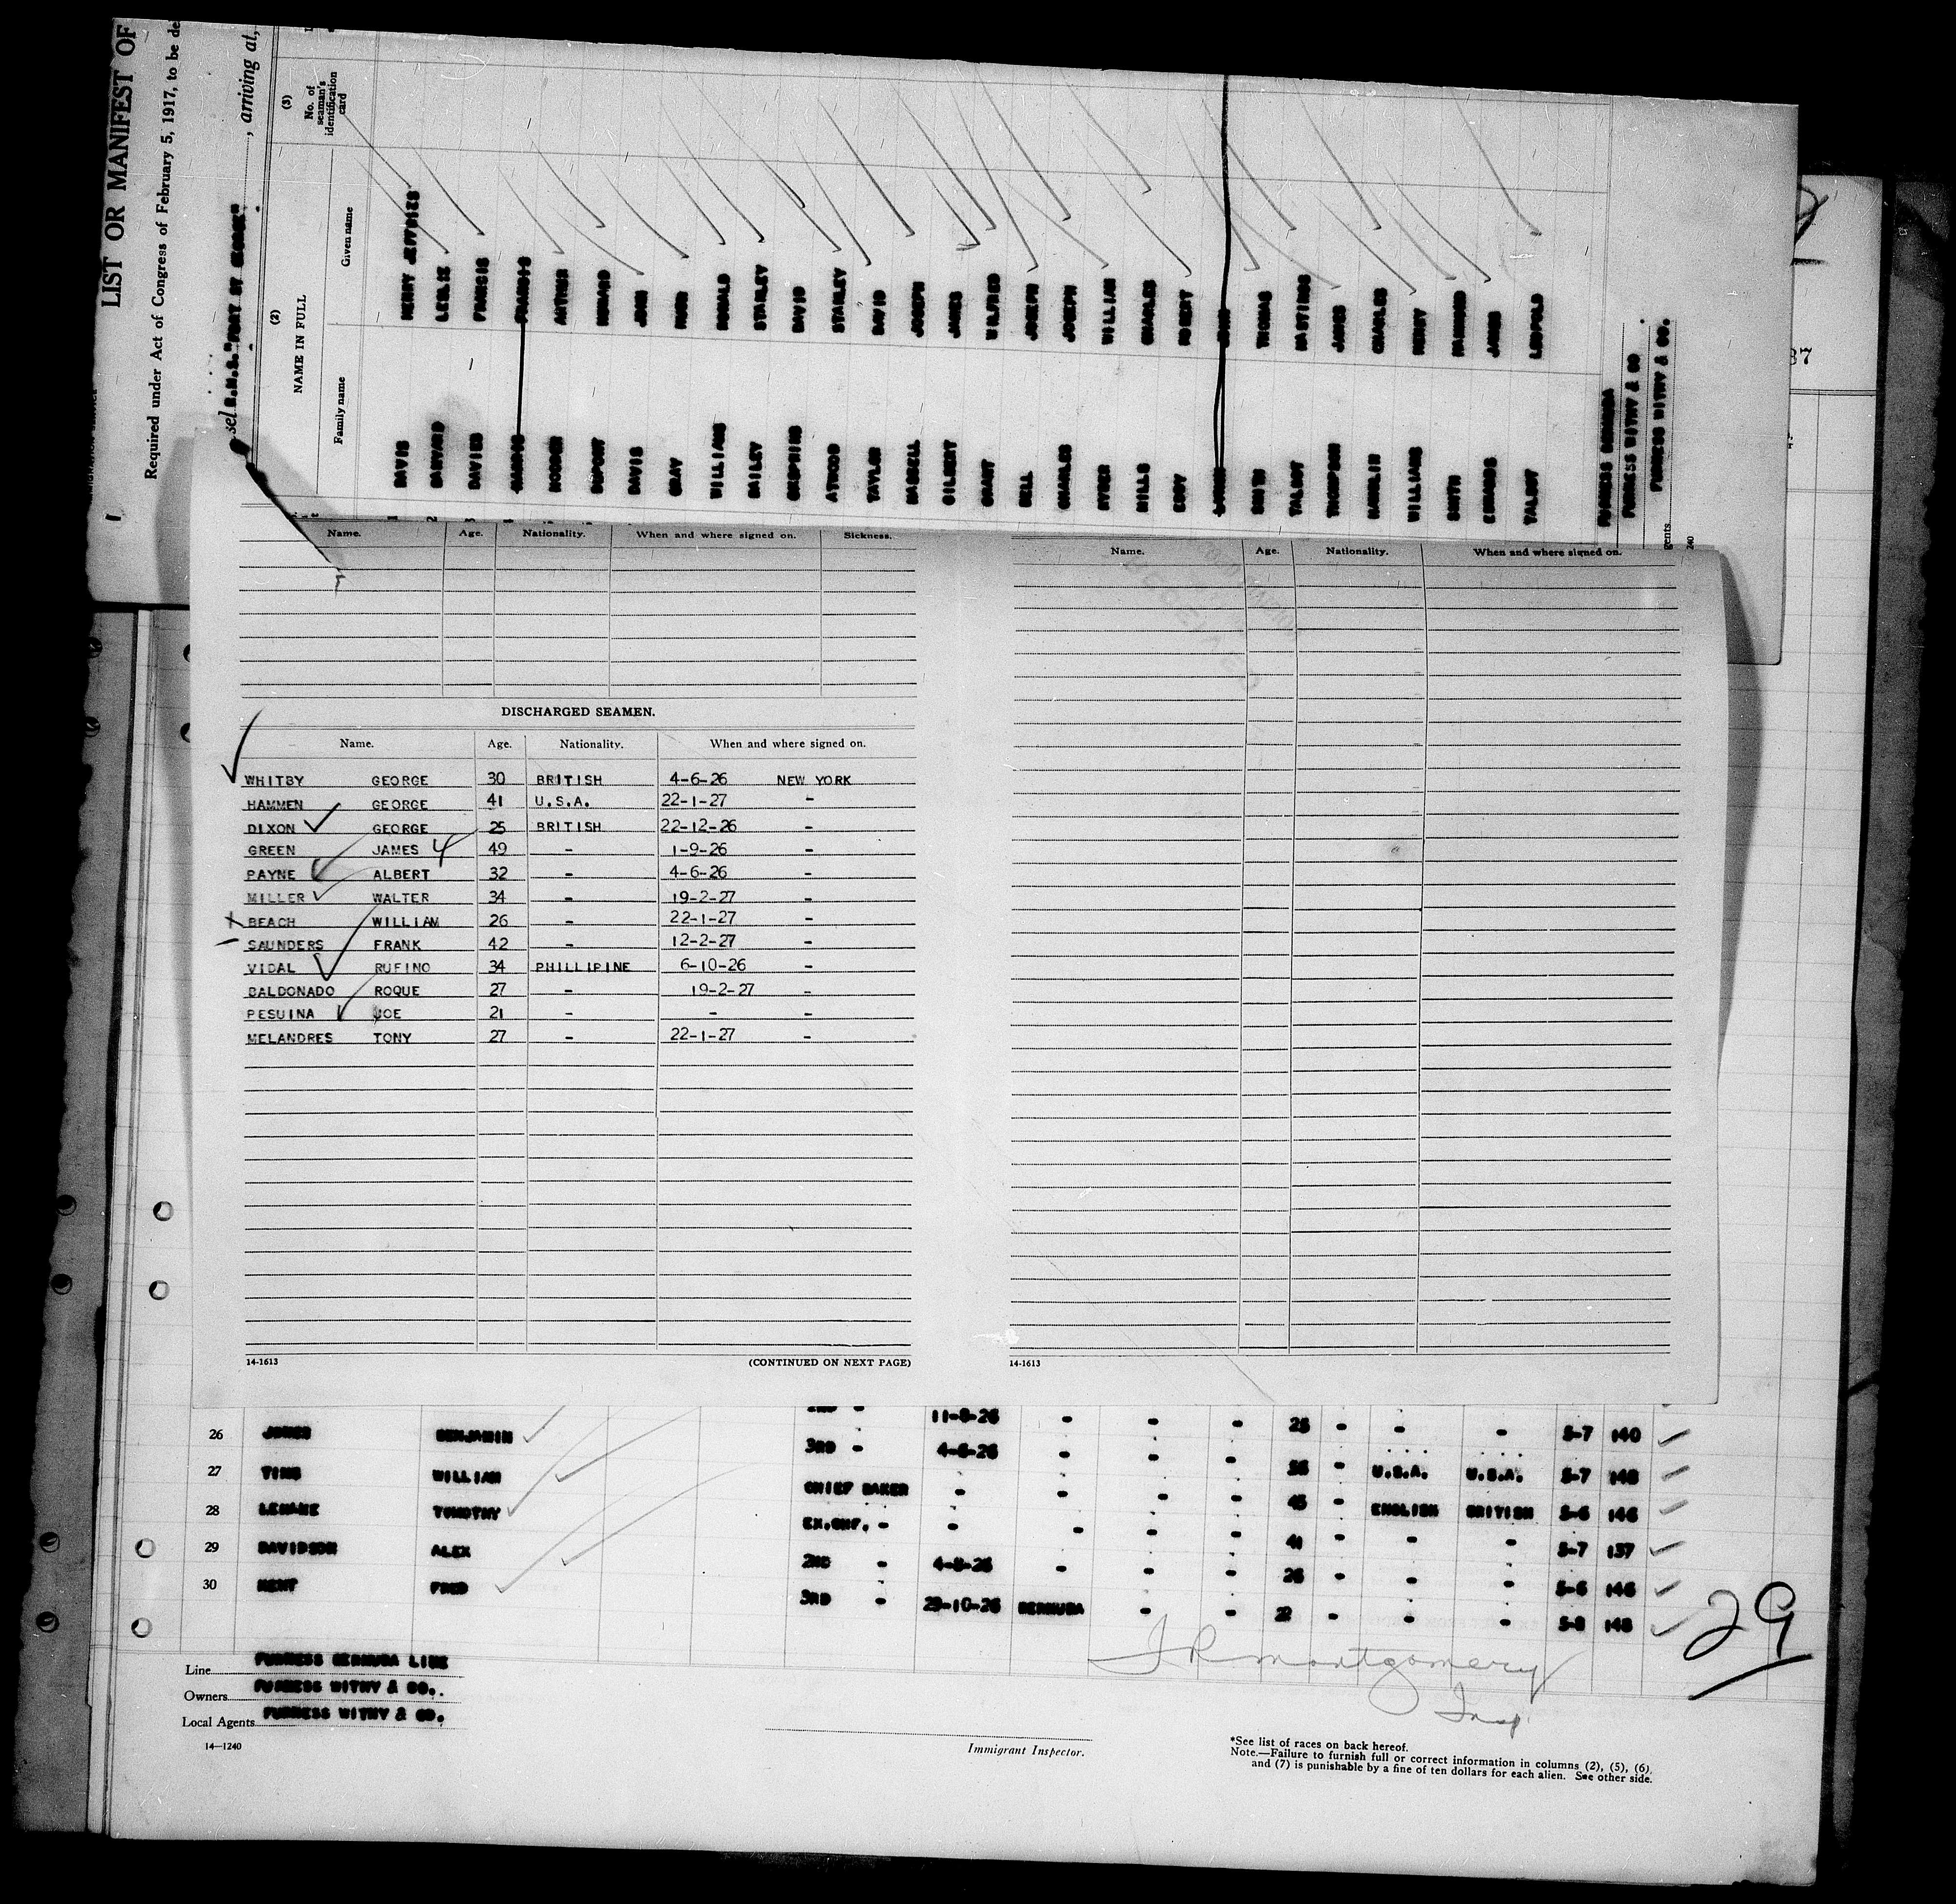 LIST OR MANIFEST OF
Required under Act of Congress of February 5, 1917, to be de
sel R.M.S. "FORT ST GEORGE" , arriving at,
(2) (3)
NAME IN FULL No. of seaman's identification card
Family name Given name
DAVIS HENRY JEFF
LESLIE
DAVIES FRANCIS
FRANCIS
HOOPER ARTHUR
DUPONT HOWARD
DAVIS JOHN
GRAY
WILLIAMS RONALD
BAILEY STANLEY
DAVID
ATWOOD STANLEY
TAYLOR DAVID
BASSELL JOSEPH
GILBERT JAMES
GRANT WILFRED
BELL JOSEPH
CHARLES JOSEPH
WILLIAM
MILLS CHARLES
EDDY ROBERT
JOHN
SMITH THOMAS
TALBOT HASTINGS
THOMPSON JAMES
HAMLIN CHARLES
WILLIAMS HENRY
SMITH HAMMOND
EDWARDS JAMES
TALBOT LEOPOLD
FURNESS BERMUDA
FURNESS WITHY & CO
FURNESS WITHY & CO.
gents
240
37
Name. Age. Nationality. When and where signed on. Sickness.
Name. Age. Nationality. When and where signed on.
RECEIVED
DISCHARGED SEAMEN.
Name. Age. Nationality. When and where signed on.
WHITBY GEORGE 30 BRITISH 4-6-26 NEW YORK
HAMMEN GEORGE 41 U.S.A. 22-1-27 -
DIXON GEORGE 25 BRITISH 22-12-26 -
GREEN JAMES 4 49 - 1-9-26 -
PAYNE ALBERT 32 - 4-6-26 -
MILLER WALTER 34 - 19-2-27 -
BEACH WILLIAM 26 - 22-1-27 -
SAUNDERS FRANK 42 - 12-2-27 -
VIDAL RUFINO 34 PHILLIPINE 6-10-26 -
BALDONADO ROQUE 27 - 19-2-27 -
PESUINA JOE 21 - - -
MELANDRES TONY 27 - 22-1-27 -
14-1613 (CONTINUED ON NEXT PAGE)
14-1613
26 JONES BENJAMIN 2ND - 11-8-26 - - - 25 - - - 5-7 140
27 TIMS WILLIAM 3RD - 4-6-26 - - - 36 - U.S.A. U.S.A. 5-7 148
28 LEHANE TIMOTHY CHIEF BAKER - - - - 45 - ENGLISH BRITISH 5-6 146
29 DAVIDSON ALEX EX.CHF. - - - - - 41 - - - 5-7 137
30 KENT FRED 2ND - 4-8-26 - - - 26 - - - 5-6 146
3RD - 29-10-26 BERMUDA - - 22 - - - 5-8 148
29
J R Montgomery
Insp
Line FURNESS BERMUDA LINE
Owners FURNESS WITHY & CO.
Local Agents FURNESS WITHY & CO.
14—1240
Immigrant Inspector.
*See list of races on back hereof.
Note.—Failure to furnish full or correct information in columns (2), (5), (6),
and (7) is punishable by a fine of ten dollars for each alien. See other side.